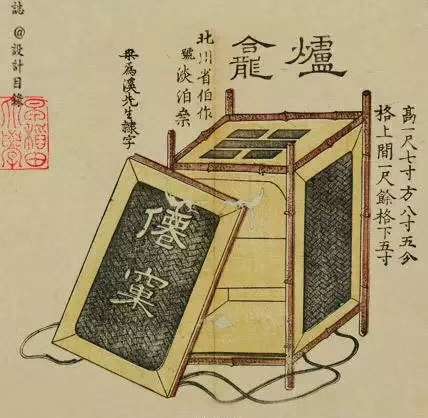 爐龕
高一尺七寸方八寸五分
格上間一尺餘格下五寸
北川省伯作
號淡泊斎
為溪先生隷字
僊窠
誌 @設計目錄